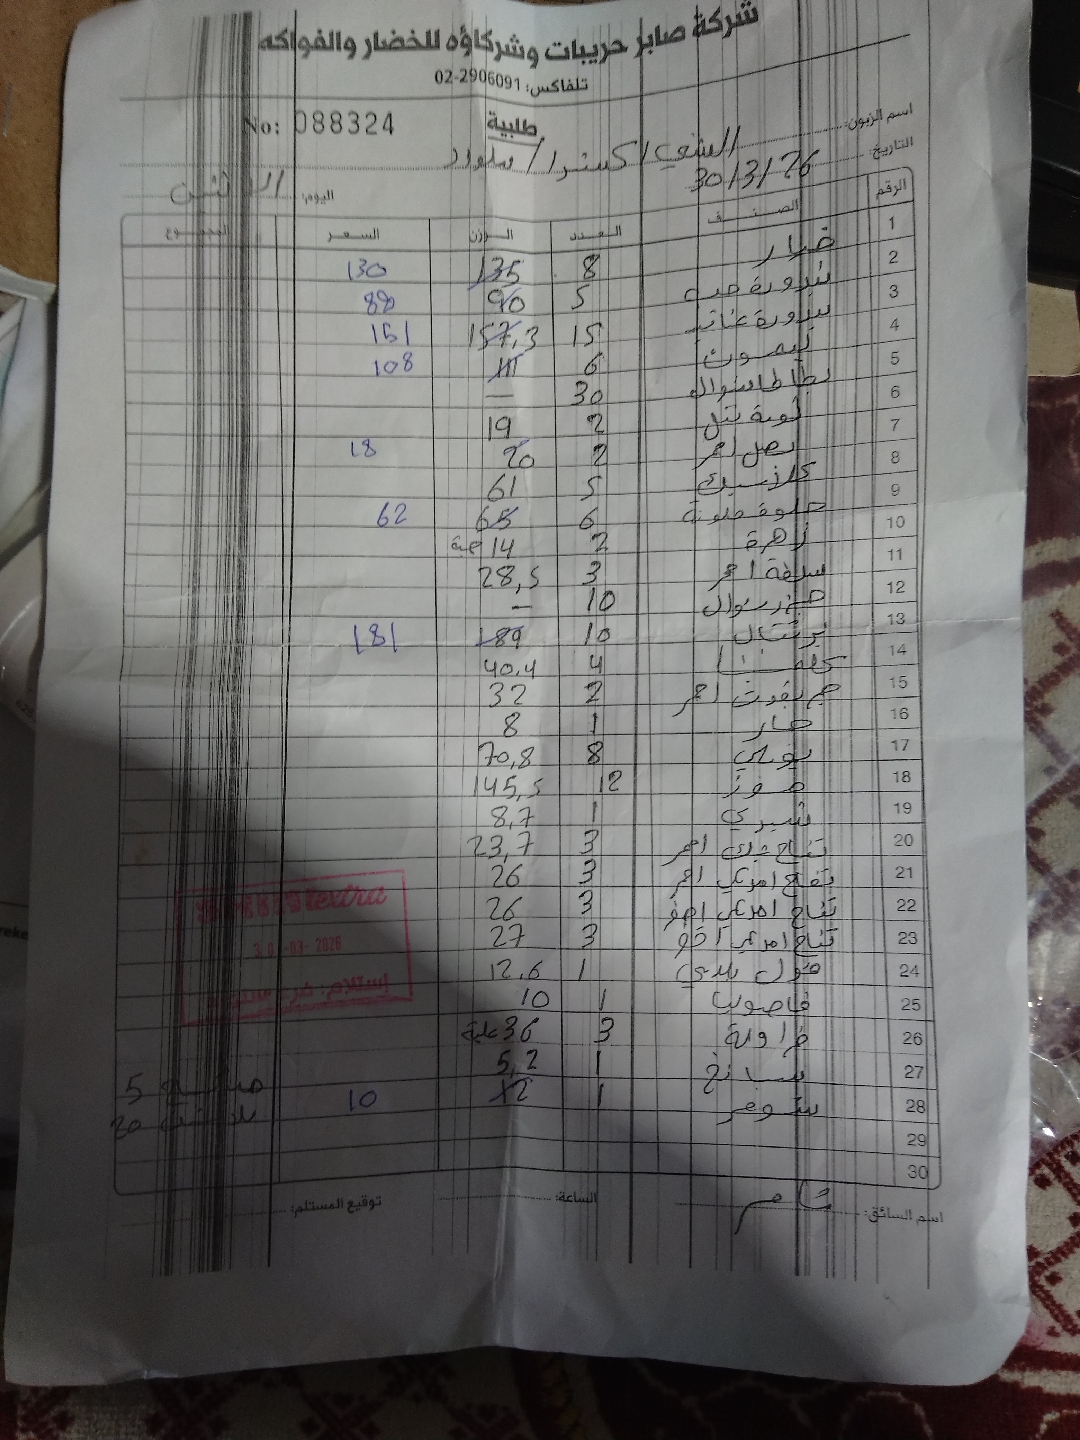 شركة صابر حريبات وشركاؤه للخضار والفواكه
تلفاكس: 02-2906091
طلبية No: 088324
اسم الزبون: الشني اكسترا / سلواد
التاريخ: 30/3/26 اليوم: الاثنين
الرقم الصنف العدد الوزن السعر المجموع
1 خيار 8 135 130
2 بندورة حب 5 90 88
3 بندورة عناقيد 15 157,3 151
4 ليمون 6 111 108
5 بطاطا شوال 30 —
6 لوبة 2 19
7 بصل احمر 2 20 18
8 كلاسيك 5 61
9 حلوة ملونة 6 65 62
10 زهرة 2 14 حبة
11 ملفوف احمر 3 28,5
12 جزر شوال 10 —
13 برتقال 10 189 181
14 كلمنتينا 4 40,4
15 جريفوت احمر 2 32
16 حار 1 8
17 بوملي 8 70,8
18 موز 12 145,5
19 شيري 1 8,7
20 تفاح احمر 3 23,7
21 تفاح امريكي احمر 3 26
22 تفاح امريكي اصفر 3 26
23 تفاح امريكي اخضر 3 27
24 فول بلدي 1 12,6
25 فاصوليا 1 10
26 فراولة 3 36 علبة
27 سبانخ 1 5,2
28 شومر 1 12 10
5
20
29
30
extra
30-03-2026
إستلام
اسم السائق: تامر الساعة: توقيع المستلم: